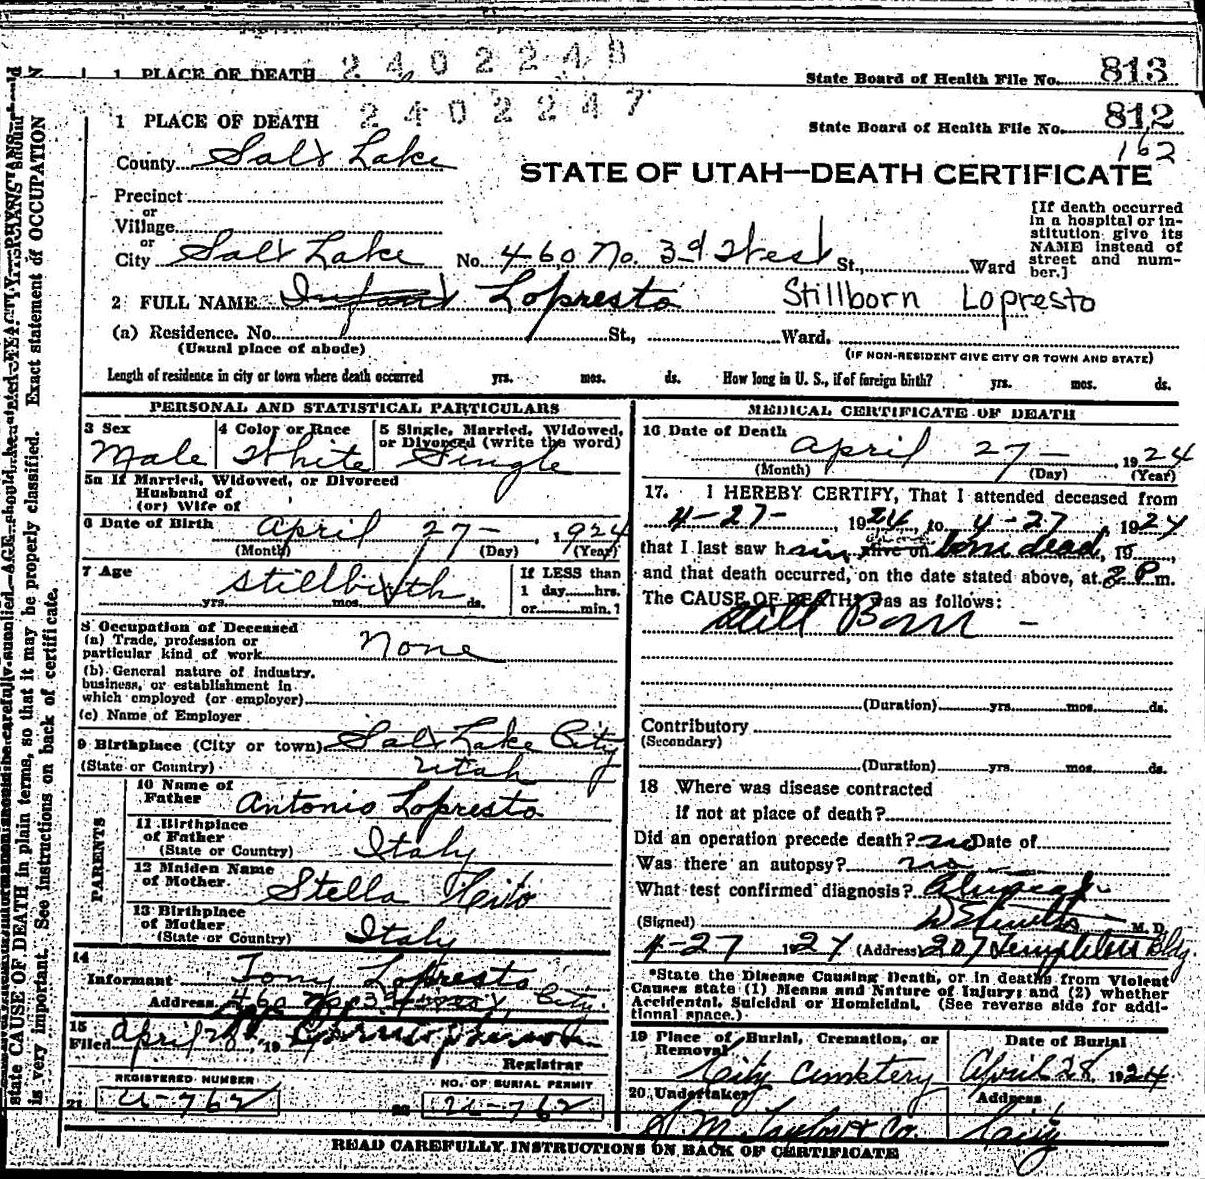 2402248
1 PLACE OF DEATH State Board of Health File No. 813
2402247
1 PLACE OF DEATH State Board of Health File No. 812
162
County Salt Lake
STATE OF UTAH—DEATH CERTIFICATE
Precinct
or
Village
or
City Salt Lake No. 460 No. 3d West St., Ward
[If death occurred
in a hospital or in-
stitution give its
NAME instead of
street and num-
ber.]
2 FULL NAME Infant Lopresto Stillborn Lopresto
(a) Residence. No. St., Ward.
(Usual place of abode) (IF NON-RESIDENT GIVE CITY OR TOWN AND STATE)
Length of residence in city or town where death occurred yrs. mos. ds. How long in U. S., if of foreign birth? yrs. mos. ds.
PERSONAL AND STATISTICAL PARTICULARS
3 Sex 4 Color or Race 5 Single, Married, Widowed,
or Divorced (write the word)
Male White Single
5a If Married, Widowed, or Divorced
Husband of
(or) Wife of
6 Date of Birth April 27- 1924
(Month) (Day) (Year)
7 Age stillbirth
yrs. mos. ds.
If LESS than
1 day hrs.
or min.?
8 Occupation of Deceased
(a) Trade, profession or
particular kind of work None
(b) General nature of industry,
business, or establishment in
which employed (or employer)
(c) Name of Employer
9 Birthplace (City or town) Salt Lake City
(State or Country) Utah
PARENTS
10 Name of
Father Antonio Lopresto
11 Birthplace
of Father
(State or Country) Italy
12 Maiden Name
of Mother Stella
13 Birthplace
of Mother
(State or Country) Italy
14
Informant Tony Lopresto
Address 460 No 3d West, City.
15
Filed April 28, 19
Registrar
REGISTERED NUMBER NO. OF BURIAL PERMIT
21 U-762 22 U-762
MEDICAL CERTIFICATE OF DEATH
16 Date of Death April 27- 1924
(Month) (Day) (Year)
17. I HEREBY CERTIFY, That I attended deceased from
4-27-, 1924, to 4-27, 1924
that I last saw him alive on born dead, 19
and that death occurred, on the date stated above, at 2 P.m.
The CAUSE OF DEATH* was as follows:
Still Born -
(Duration) yrs. mos. ds.
Contributory
(Secondary)
(Duration) yrs. mos. ds.
18 Where was disease contracted
if not at place of death?
Did an operation precede death? no Date of
Was there an autopsy? no
What test confirmed diagnosis?
(Signed) M. D.
4-27 1924 (Address) 207 Templeton Bldg.
*State the Disease Causing Death, or in deaths from Violent
Causes state (1) Means and Nature of Injury; and (2) whether
Accidental, Suicidal or Homicidal. (See reverse side for addi-
tional space.)
19 Place of Burial, Cremation, or
Removal City Cemetery
Date of Burial
April 28, 1924
20 Undertaker
S. M. Taylor & Co.
Address
City
READ CAREFULLY INSTRUCTIONS ON BACK OF CERTIFICATE
state CAUSE OF DEATH in plain terms, so that it may be properly classified. Exact statement of OCCUPATION
is very important. See instructions on back of certificate.